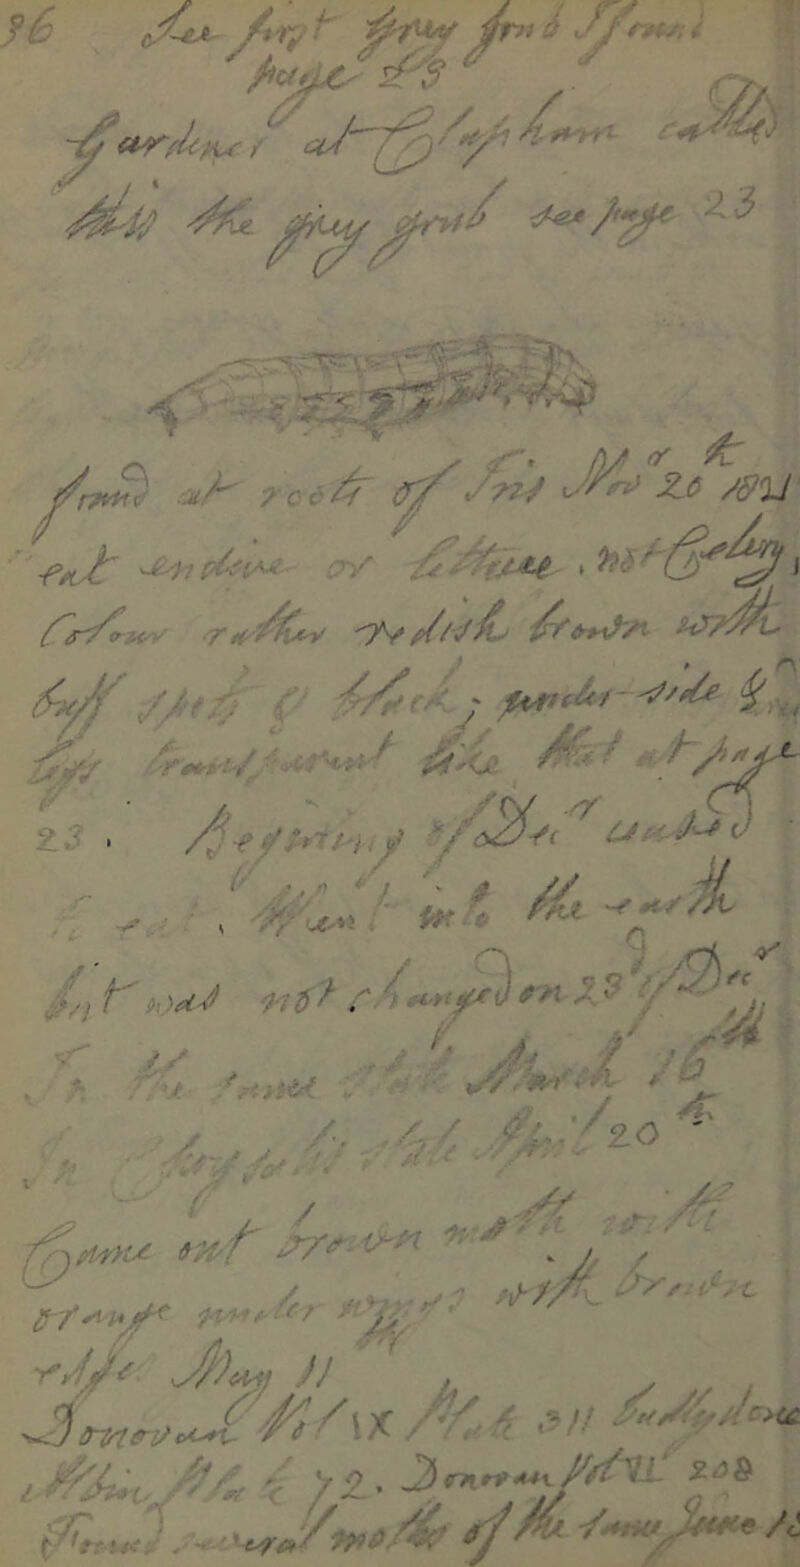 36 See first grey grub found
page 23
Gardener at Clapham called
this the grey grub see page 23
found at roots of Iris Novr 20th
eat endive or lettuce . not
Colour rather redish brown with
buff spots & black ; under side &
legs transparent like that at page
23 . Begining of Decr
eat , Went into the earth
but was not changed on 23 of Decr
In the same state March 16th
In Chrysalis state April 20th
Came out brown moth with
orange under wings with brown
edge May 11
Donovan Vol IX Plate 311
Albin Plate 72 . Donovan Vol VI 208
Found several moths of the same June